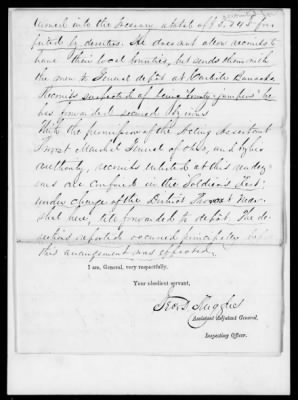 turned into the treasury a total of $3,745 for-
feited by deserters. He does not allow recruits to
have their local bounties, but sends them with
the men to General depot at Carlisle Barracks
Recruits suspected of being "bounty-jumpers" he
has forwarded secured by irons
With the permission of the Acting Assistant
Provost Marshal General of Ohio, and by
authority, recruits enlisted at this rendez-
vous are confined in the Soldiers
under charge of the District Provost Mar-
shal here, till forwarded to depot. The de-
sertions reported occurred principally before
this arrangement was effected.
I am, General, very respectfully,
Your obedient servant,
Geo. D. Ruggles
Assistant Adjutant General,
Inspecting Officer.